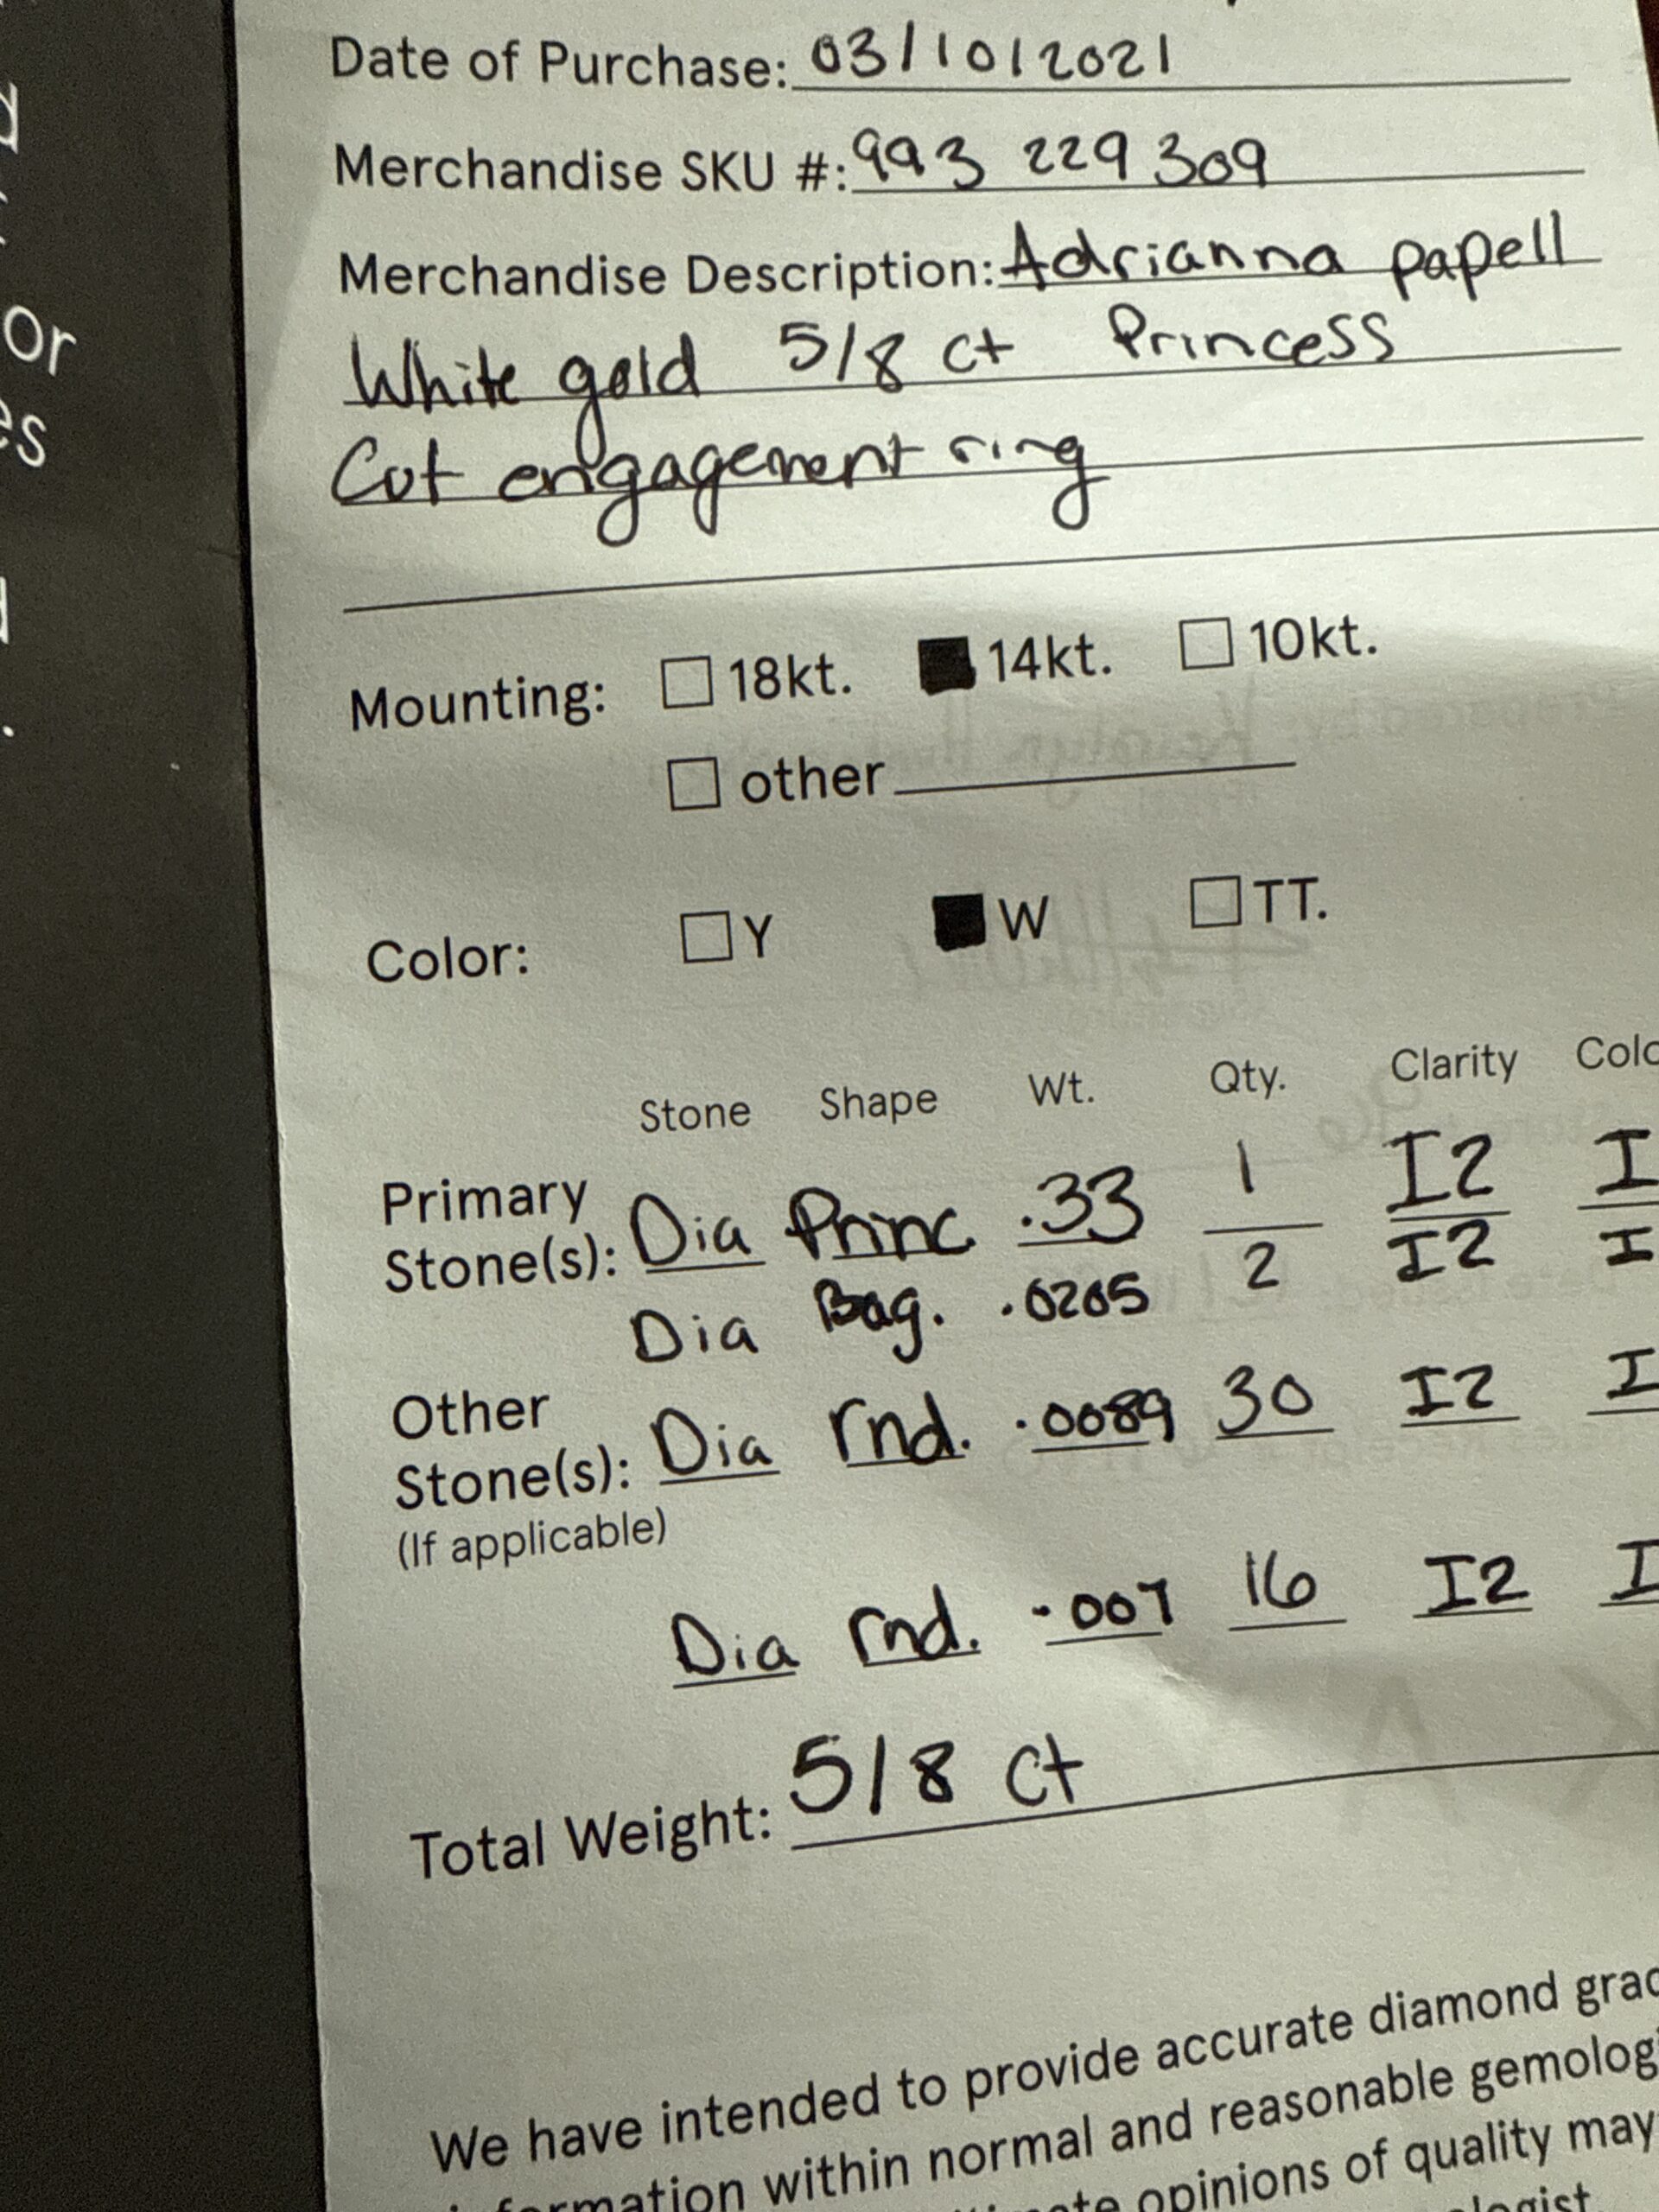 or
es
Date of Purchase: 03/10/2021
Merchandise SKU #: 993 229 309
Merchandise Description: Adrianna papell
White gold 5/8 ct Princess
Cut engagement ring
Mounting: 18kt. 14kt. 10kt.
other
Color: Y W TT.
Stone Shape Wt. Qty. Clarity Colo
Primary
Stone(s): Dia Princ .33 1 I2 I
Dia Bag. .0205 2 I2 I
Other
Stone(s): Dia rnd. .0089 30 I2 I
(If applicable)
Dia rnd. .007 16 I2 I
Total Weight: 5/8 ct
We have intended to provide accurate diamond grad
formation within normal and reasonable gemologi
opinions of quality may
ologist